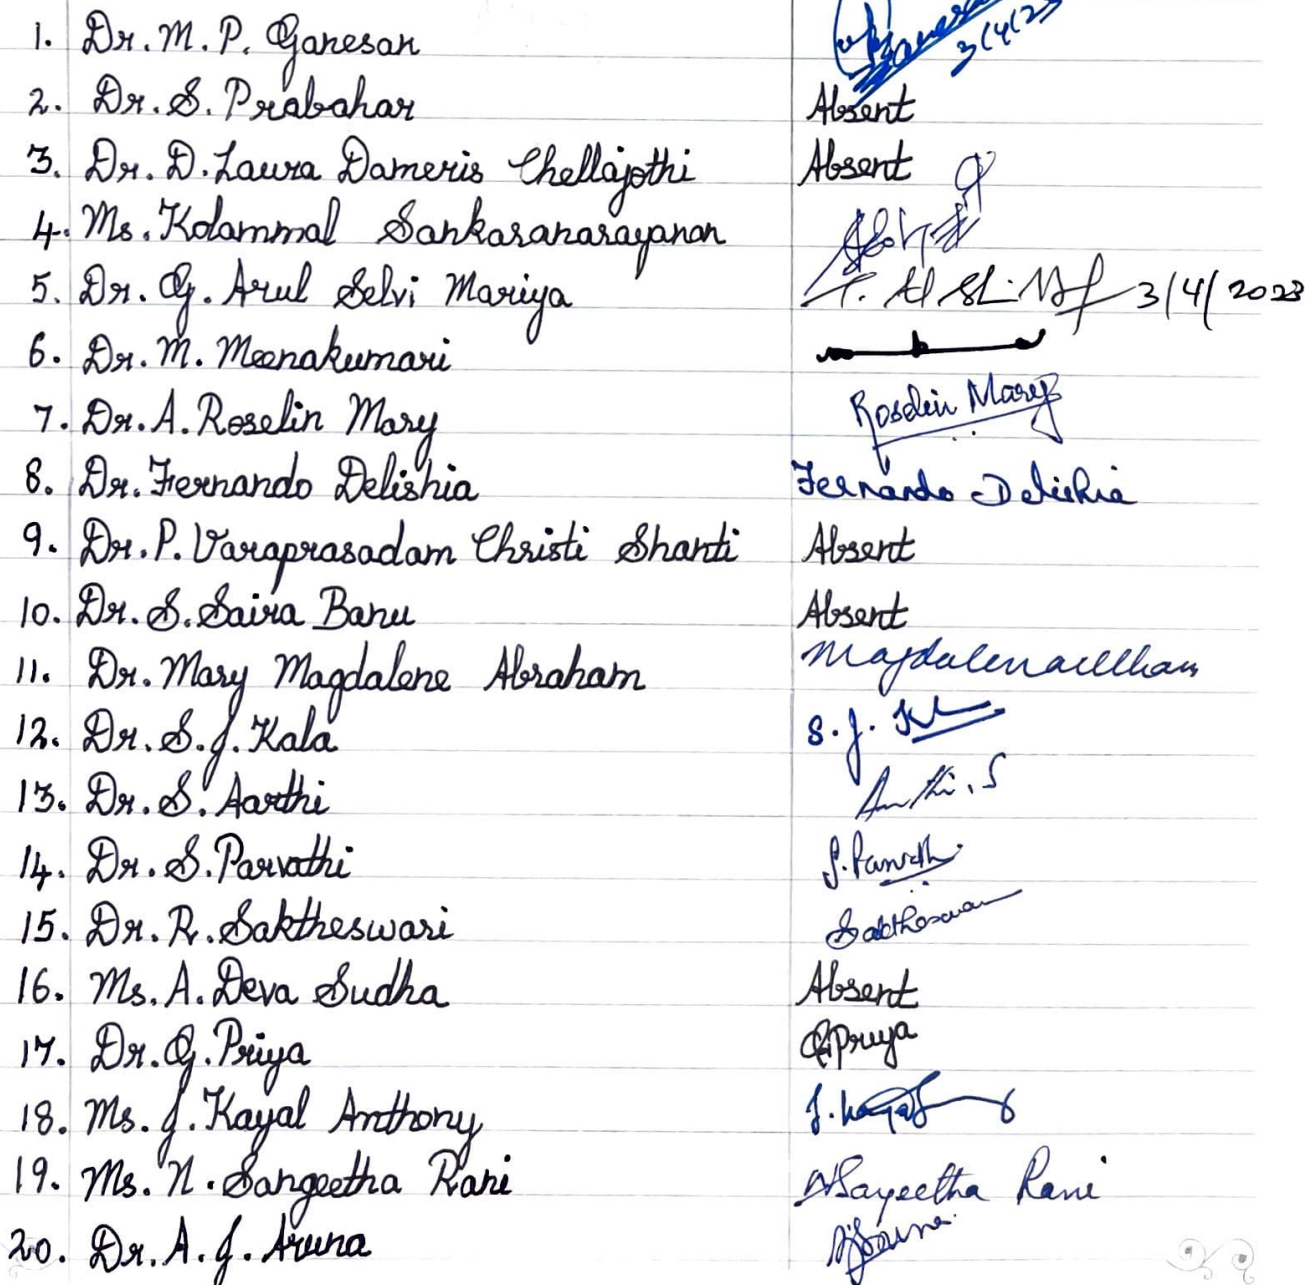 1. Dr. M. P. Ganesan 3/4/23
2. Dr. S. Prabahar Absent
3. Dr. D. Laura Dameris Chellajothi Absent
4. Ms. Kolammal Sankaranarayanan
5. Dr. G. Arul Selvi Mariya 3/4/2023
6. Dr. M. Meenakumari
7. Dr. A. Roselin Mary Roselin Mary
8. Dr. Fernando Delishia Fernando Delishia
9. Dr. P. Varaprasadam Christi Shanti Absent
10. Dr. S. Saira Banu Absent
11. Dr. Mary Magdalene Abraham
12. Dr. S. J. Kala S. J.
13. Dr. S. Aarthi
14. Dr. S. Parvathi
15. Dr. R. Saktheswari
16. Ms. A. Deva Sudha Absent
17. Dr. G. Priya G. Priya
18. Ms. J. Kayal Anthony
19. Ms. N. Sangeetha Rani N Sangeetha Rani
20. Dr. A. J. Aruna